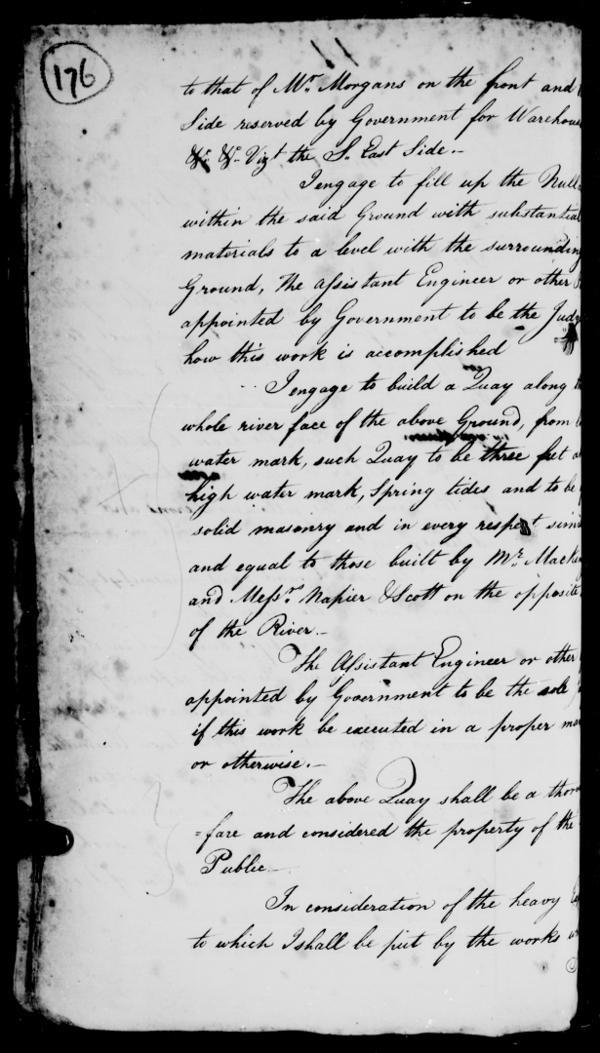 176
to that of Mr. Morgans on the front and
Side reserved by Government for
Vizt the S. East Side.-
I engage to fill up the
within the said Ground with substantial
materials to a level with the surrounding
Ground, The Assistant Engineer or other
appointed by Government to be the
how this work is accomplished
I engage to build a Quay along
whole river face of the above Ground, from
water mark, such Quay to be three feet
high water mark, Spring tides and to be
solid masonry and in every respect
and equal to those built by Mr.
and Messrs. Napier & Scott on the opposite
of the River.-
The Assistant Engineer or other
appointed by Government to be the sole
if this work be executed in a proper
or otherwise.-
The above Quay shall be a
=fare and considered the property of the
Public.-
In consideration of the heavy
to which I shall be put by the works